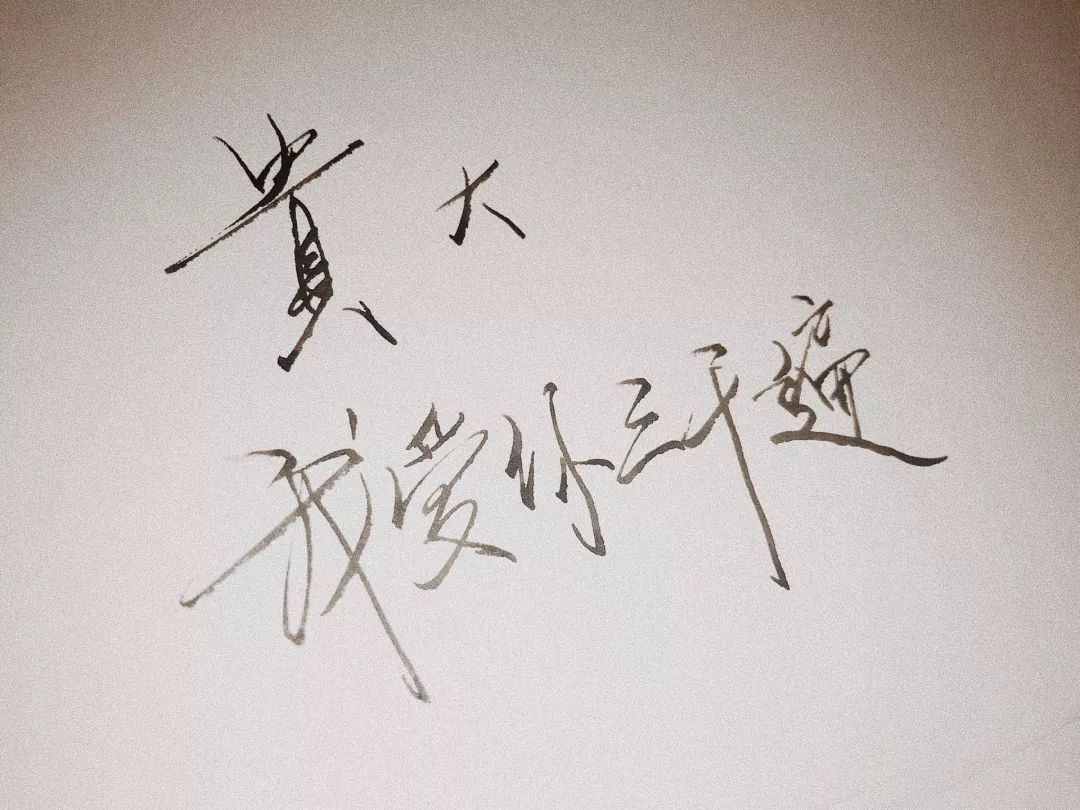 貴大
我爱你三千遍